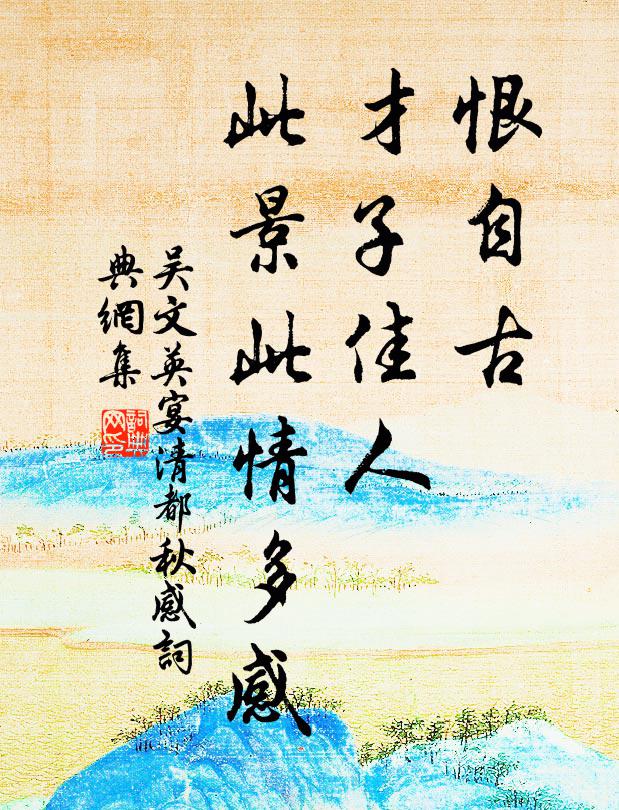 恨自古
才子佳人
此景此情多感
吴文英宴清都秋感詞
典網集
詞典
网印